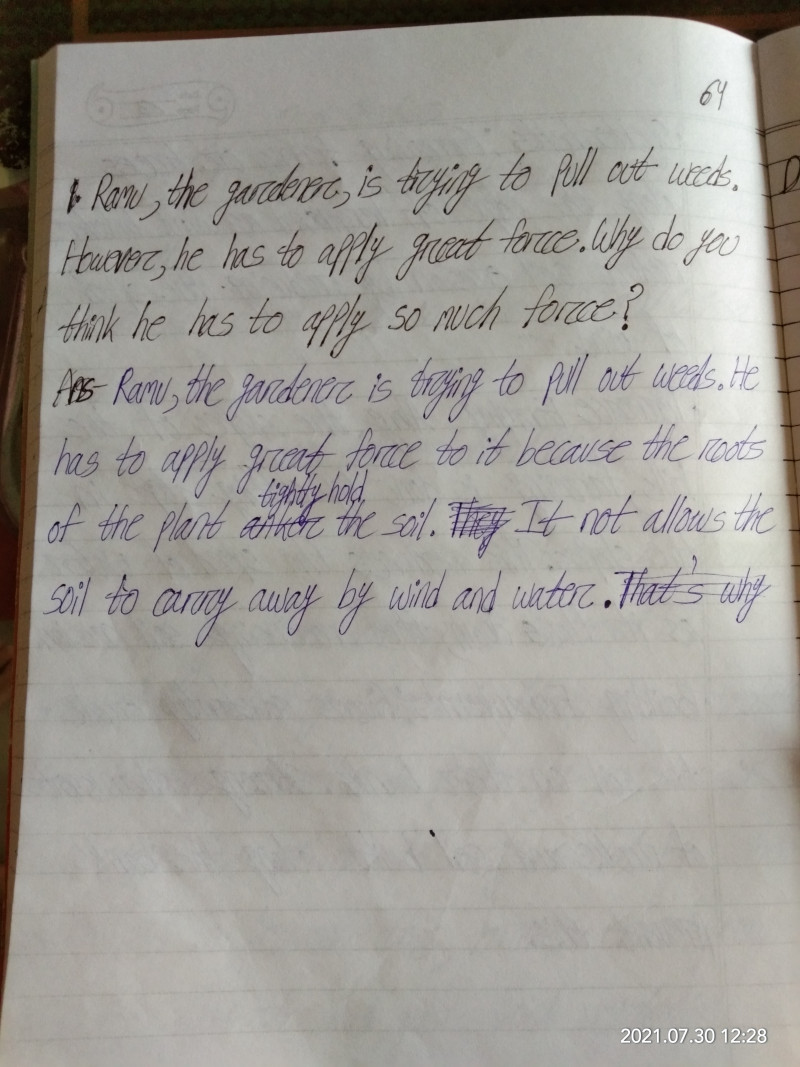 64
1. Ramu, the gardener, is trying to pull out weeds.
However, he has to apply great force. Why do you
think he has to apply so much force?
Ans- Ramu, the gardener is trying to pull out weeds. He
has to apply great force to it because the roots
tightly hold
of the plant the soil. They It not allows the
soil to carry away by wind and water. That's why
2021.07.30 12:28